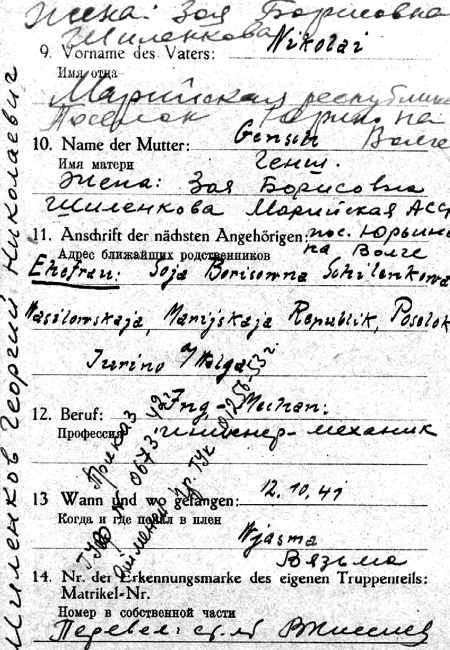 Жена: Зоя Борисовна
Шиленкова
9. Vorname des Vaters: Nikolai
Имя отца
Марийская республика
Поселок Юрино на
Волге
10. Name der Mutter: Gensch
Имя матери Генш.
Жена: Зоя Борисовна
Шиленкова Марийская АСС
11. Anschrift der nächsten Angehörigen: пос. Юрьино
Адрес ближайших родственников на Волге
Ehefrau: Soja Borisowna Schilenkowa
Wasilowskaja, Marijskaja Republik, Posolok
Iurino a/Wolga
12. Beruf: Ing.-Mechan.
Профессия инженер-механик
13 Wann und wo gefangen: 12.10.41
Когда и где попал в плен
Wjasma
Вязьма
14. Nr. der Erkennungsmarke des eigenen Truppenteils:
Matrikel-Nr.
Номер в собственной части
Перевел: ст. лт
Шиленков Георгий Николаевич
Приказ
ГУК № 0673